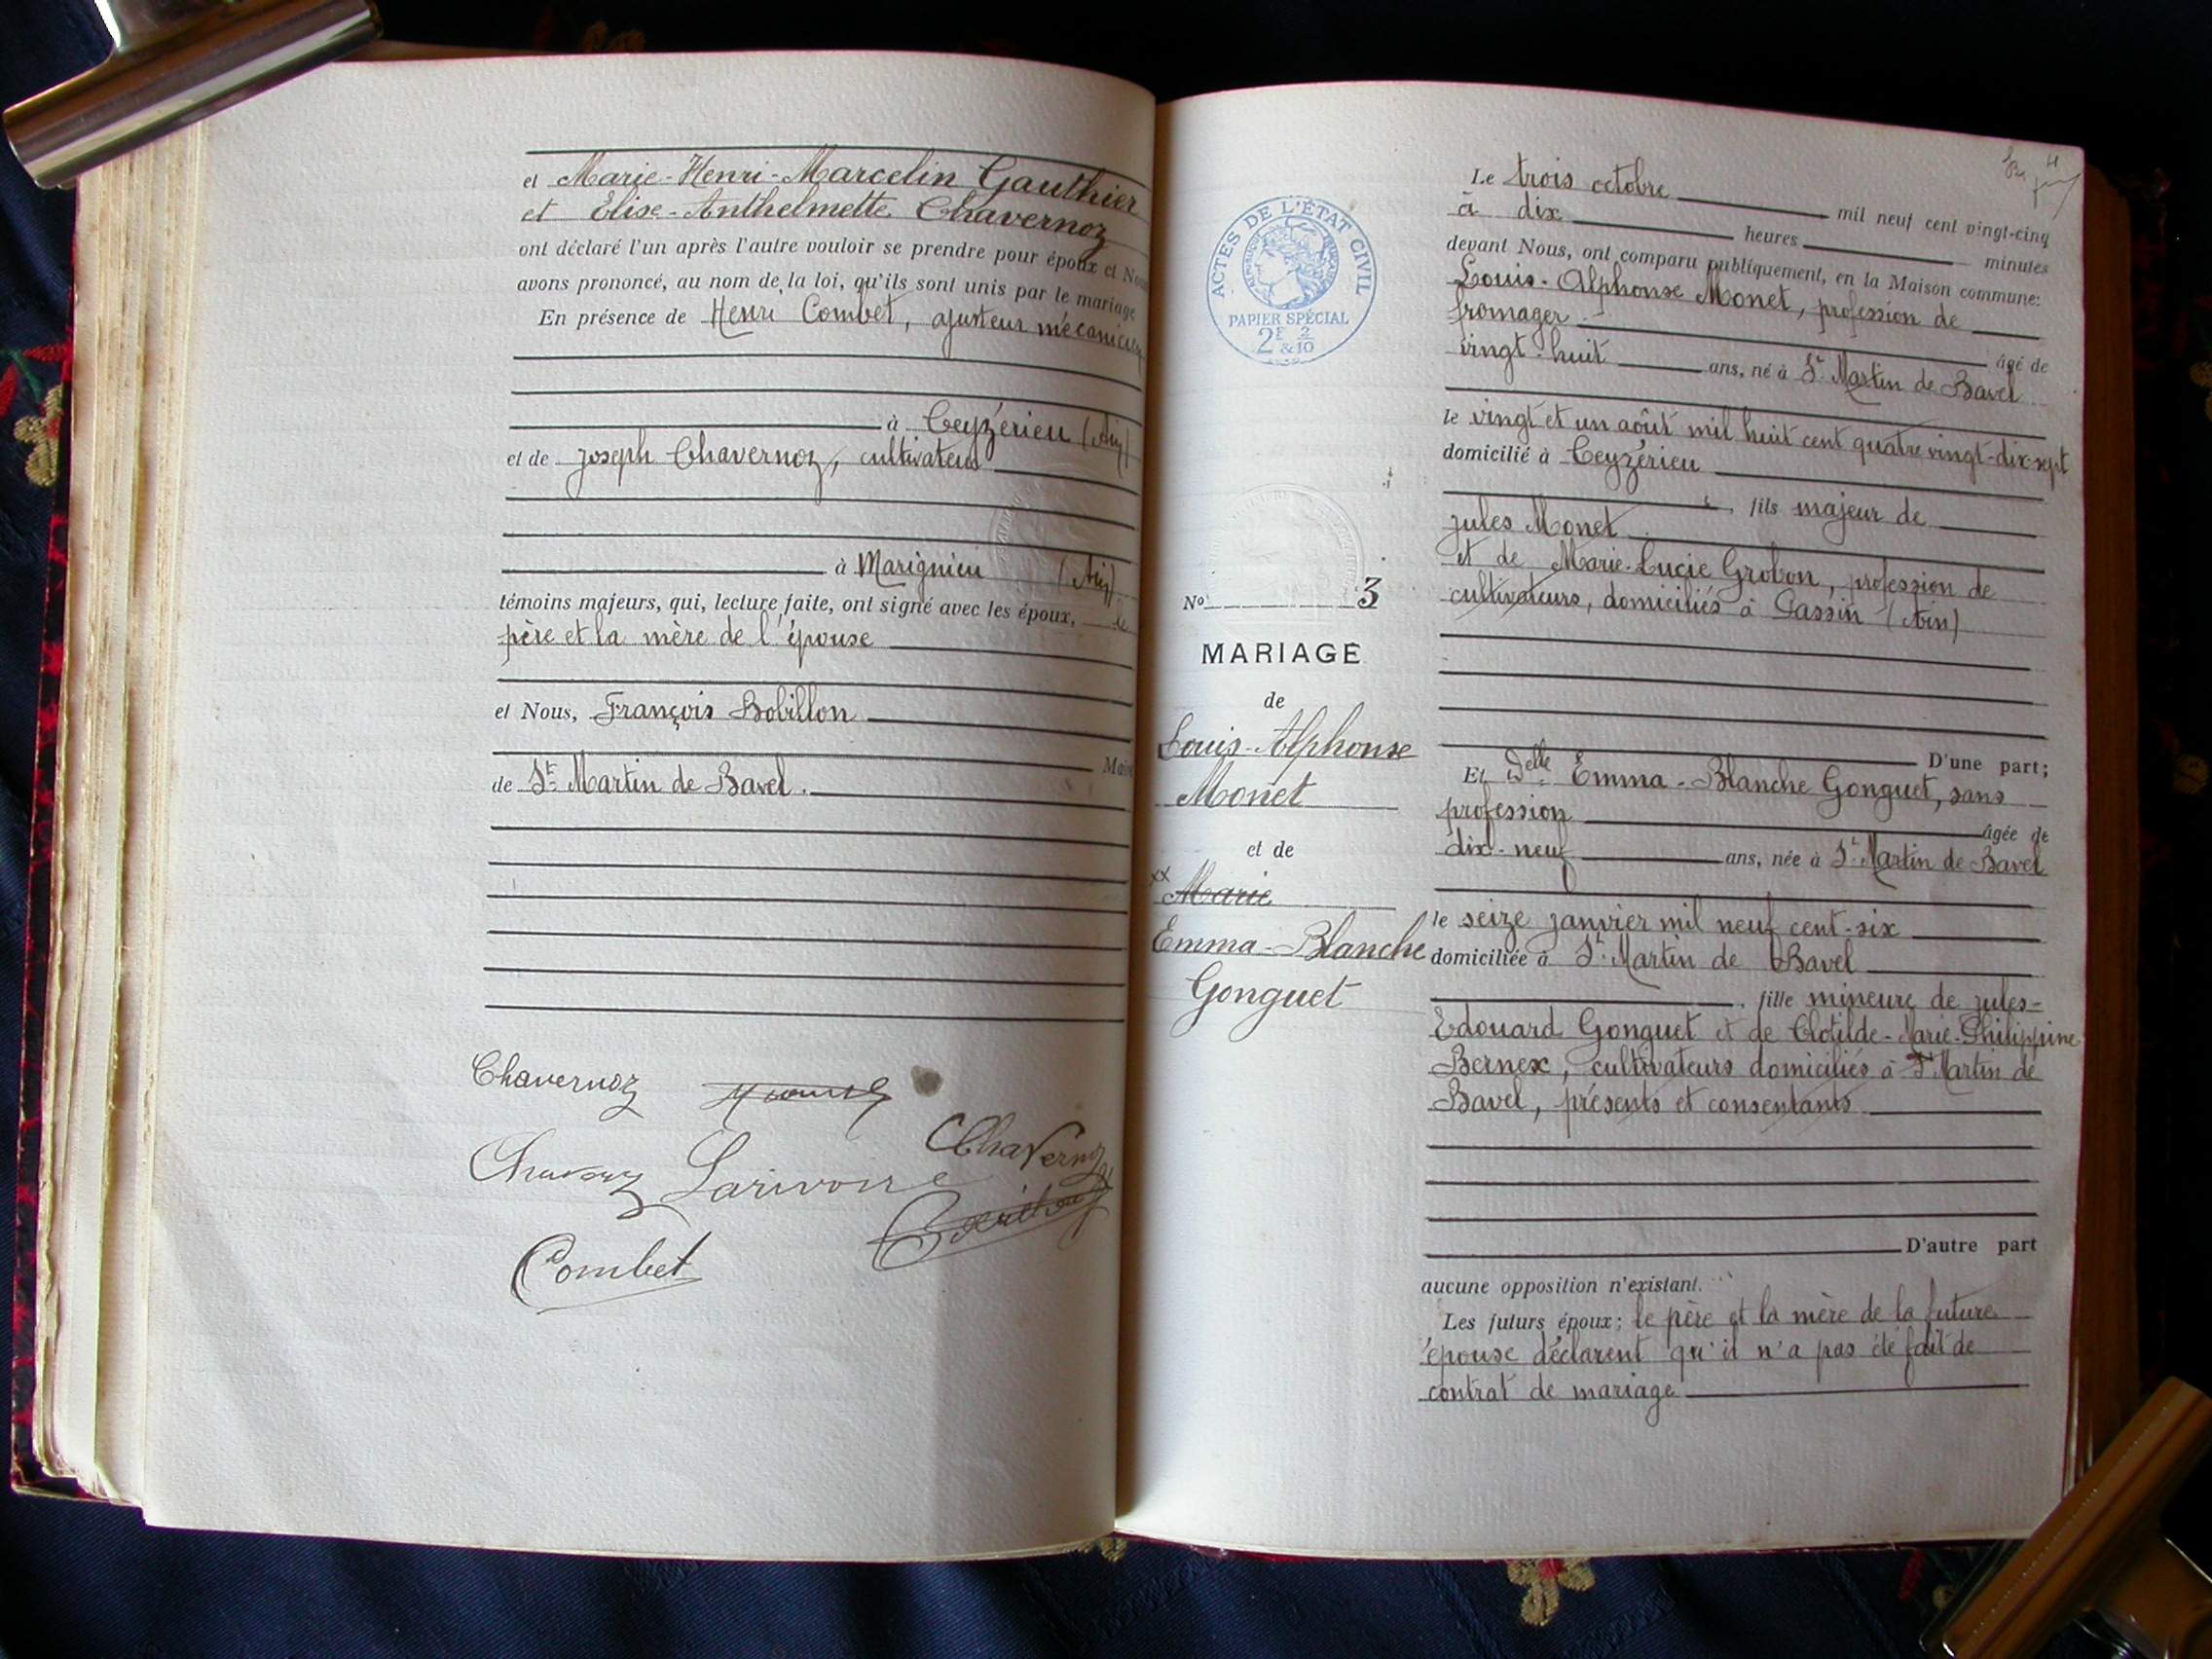 et Marie-Henri-Marcelin Gauthier
et Elise-Anthelmette Chavernoz
ont déclaré l'un après l'autre vouloir se prendre pour époux et Nous
avons prononcé, au nom de la loi, qu'ils sont unis par le mariage
En présence de Henri Combet, ajusteur mécanicien
à Ceyzérieu (Ain)
et de Joseph Chavernoz, cultivateur
à Marignieu (Ain)
témoins majeurs, qui, lecture faite, ont signé avec les époux, le
père et la mère de l'épouse
et Nous, François Bobillon
Maire
de St Martin de Bavel.
Chavernoz
Chavernoz
Larivoire
Combet
ACTES DE L'ÉTAT CIVIL
PAPIER SPÉCIAL
2F 2
&10
No 3
MARIAGE
de
Louis-Alphonse
Monet
et de
xx Marie
Emma-Blanche
Gonguet
Le trois octobre mil neuf cent vingt-cinq
à dix heures minutes
devant Nous, ont comparu publiquement, en la Maison commune:
Louis-Alphonse Monet, profession de
fromager âgé de
vingt-huit ans, né à St Martin de Bavel
le vingt et un août mil huit cent quatre vingt-dix-sept
domicilié à Ceyzérieu
, fils majeur de
Jules Monet
et de Marie-Lucie Grobon, profession de
cultivateurs, domiciliés à Gassin (Ain)
D'une part;
Et Delle Emma-Blanche Gonguet, sans
profession âgée de
dix-neuf ans, née à St Martin de Bavel
le seize janvier mil neuf cent-six
domiciliée à St Martin de Bavel
, fille mineure de Jules-
Edouard Gonguet et de Clotilde-Marie-Philippine
Bernex, cultivateurs domiciliés à St Martin de
Bavel, présents et consentants
D'autre part
aucune opposition n'existant.
Les futurs époux; le père et la mère de la future
épouse déclarent qu'il n'a pas été fait de
contrat de mariage